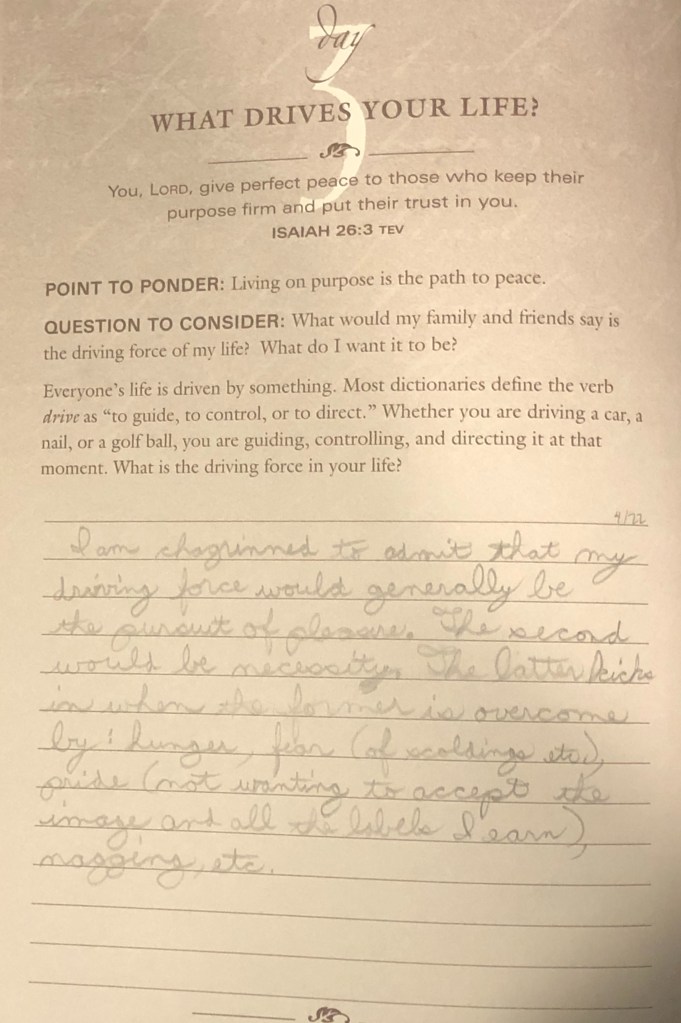 day
3
WHAT DRIVES YOUR LIFE?
You, LORD, give perfect peace to those who keep their
purpose firm and put their trust in you.
ISAIAH 26:3 TEV
POINT TO PONDER: Living on purpose is the path to peace.
QUESTION TO CONSIDER: What would my family and friends say is
the driving force of my life? What do I want it to be?
Everyone's life is driven by something. Most dictionaries define the verb
drive as “to guide, to control, or to direct.” Whether you are driving a car, a
nail, or a golf ball, you are guiding, controlling, and directing it at that
moment. What is the driving force in your life?
4/22
I am chagrinned to admit that my
driving force would generally be
the pursuit of pleasure. The second
would be necessity. The latter kicks
in when the former is overcome
by: hunger, fear (of scoldings etc.),
pride (not wanting to accept the
image and all the labels I earn),
nagging, etc.